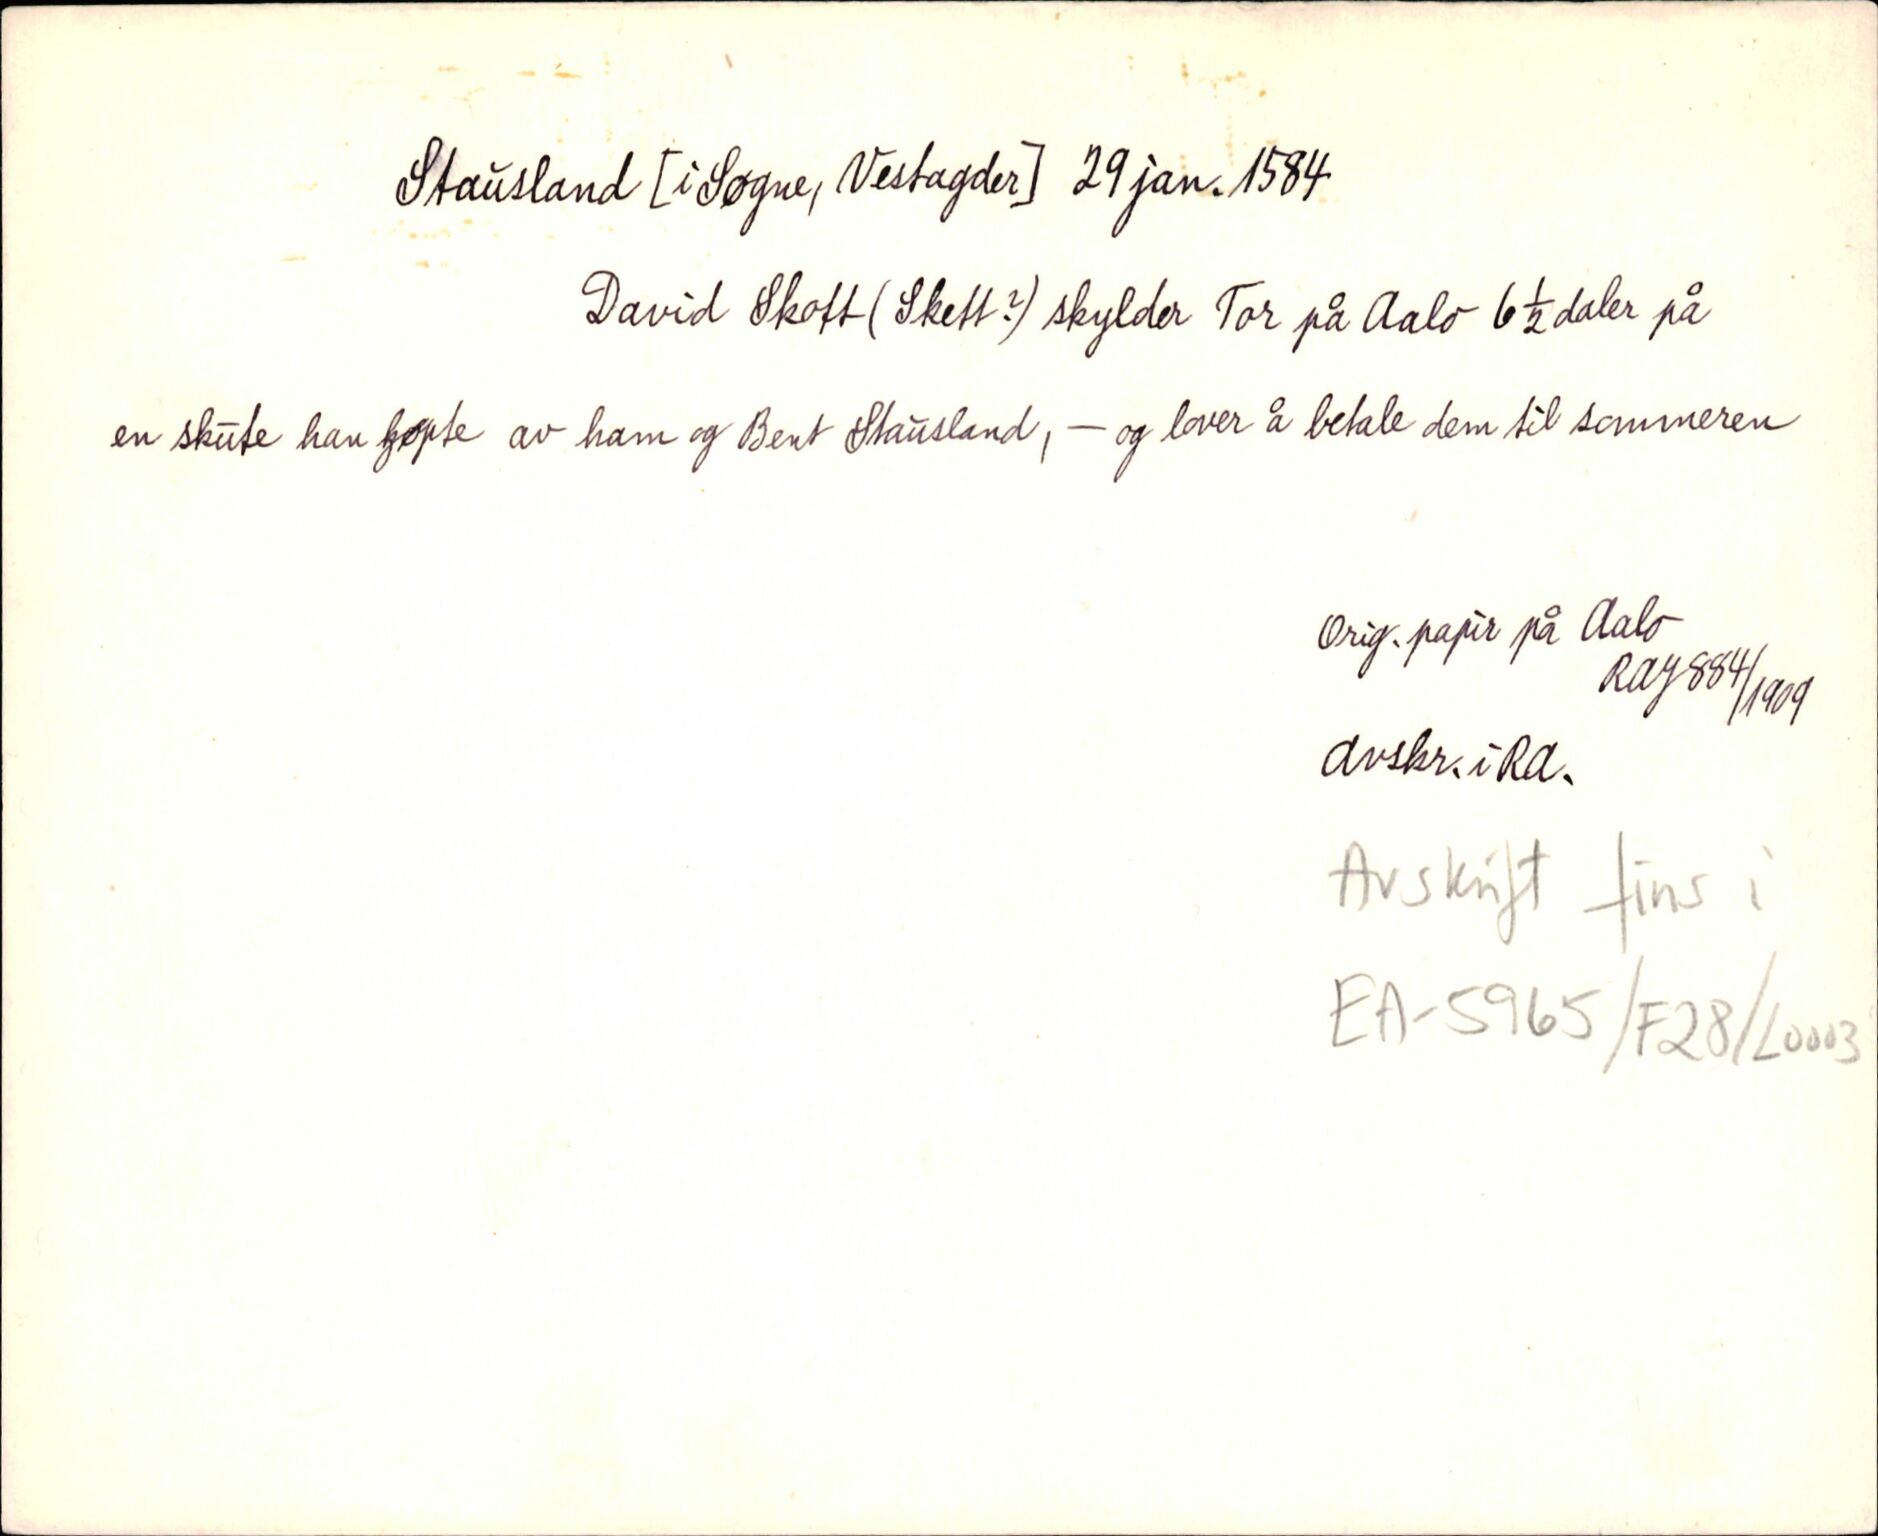 Stausland [i Søgne, Vestagder] 29 jan. 1584
David Skott (Skett?) skylder Tor på Aalo 6½ daler på
en skute han kjøpte av ham og Bent Stausland, — og lover å betale dem til sommeren
Orig. papir på Aalo
RAJ 884/1909
Avskr. i RA.
Avskrift fins i
EA-5965/F28/L0003